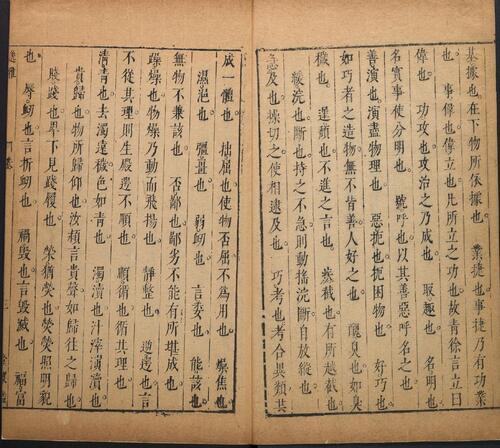 基據也在下物所依據也　業捷也事捷乃有功業
也　事偉也偉立也凡所立之功也故青徐言立曰
偉也　功攻也攻治之乃成也　取趣也　名明也
名實事使分明也　號呼也以其善惡呼名之也
善演也演盡物理也　惡扼也扼困物也　好巧也
如巧者之造物無不皆善人好之也　醜臭也如臭
穢也　遲頹也不進之言也　截也有所越截也
緩浣也斷也持之不急則動搖浣斷自放縱也
急及也操切之使相逮及也　巧考也考合異類共
成一體也　拙屈也使物否屈不為用也　燥焦也
濕浥也　彊畺也　弱衂也　言委也　能該也
無物不兼該也　否鄙也鄙劣不能有所堪成也
躁燥也物燥乃動而飛揚也　靜整也　逆遻也言
不從其理則生殿遻不順也　順循也循其理也
清青也去濁遠穢色如青也　濁瀆也汁滓演瀆也
貴歸也物所歸仰也汝潁言貴聲如歸往之歸也
賤踐也卑下見踐履也　榮猶熒也熒熒照明貌
也　辱衂也言折衂也　禍毀也言毀滅也　福富
逸雅